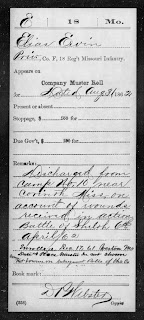 E | 18 | Mo.
Elias Ervin
Priv., Co. F, 18 Reg't Missouri Infantry.
Appears on
Company Muster Roll
for dated Aug 31, 1862
Present or absent
Stoppage, $ 100 for
Due Gov't, $ 100 for
Remarks:
Discharged from
camp No. R near
Corinth Miss, on
account of wounds
recived in action
Battle of Shiloh 6th
April 62
Date & Place
Book mark:
(358)
D P Webster
Copyist.